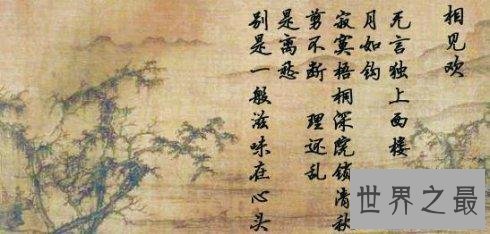 相见欢
无言独上西楼
月如钩
寂寞梧桐深院锁清秋
剪不断 理还乱
是离愁
别是一般滋味在心头
世界之最